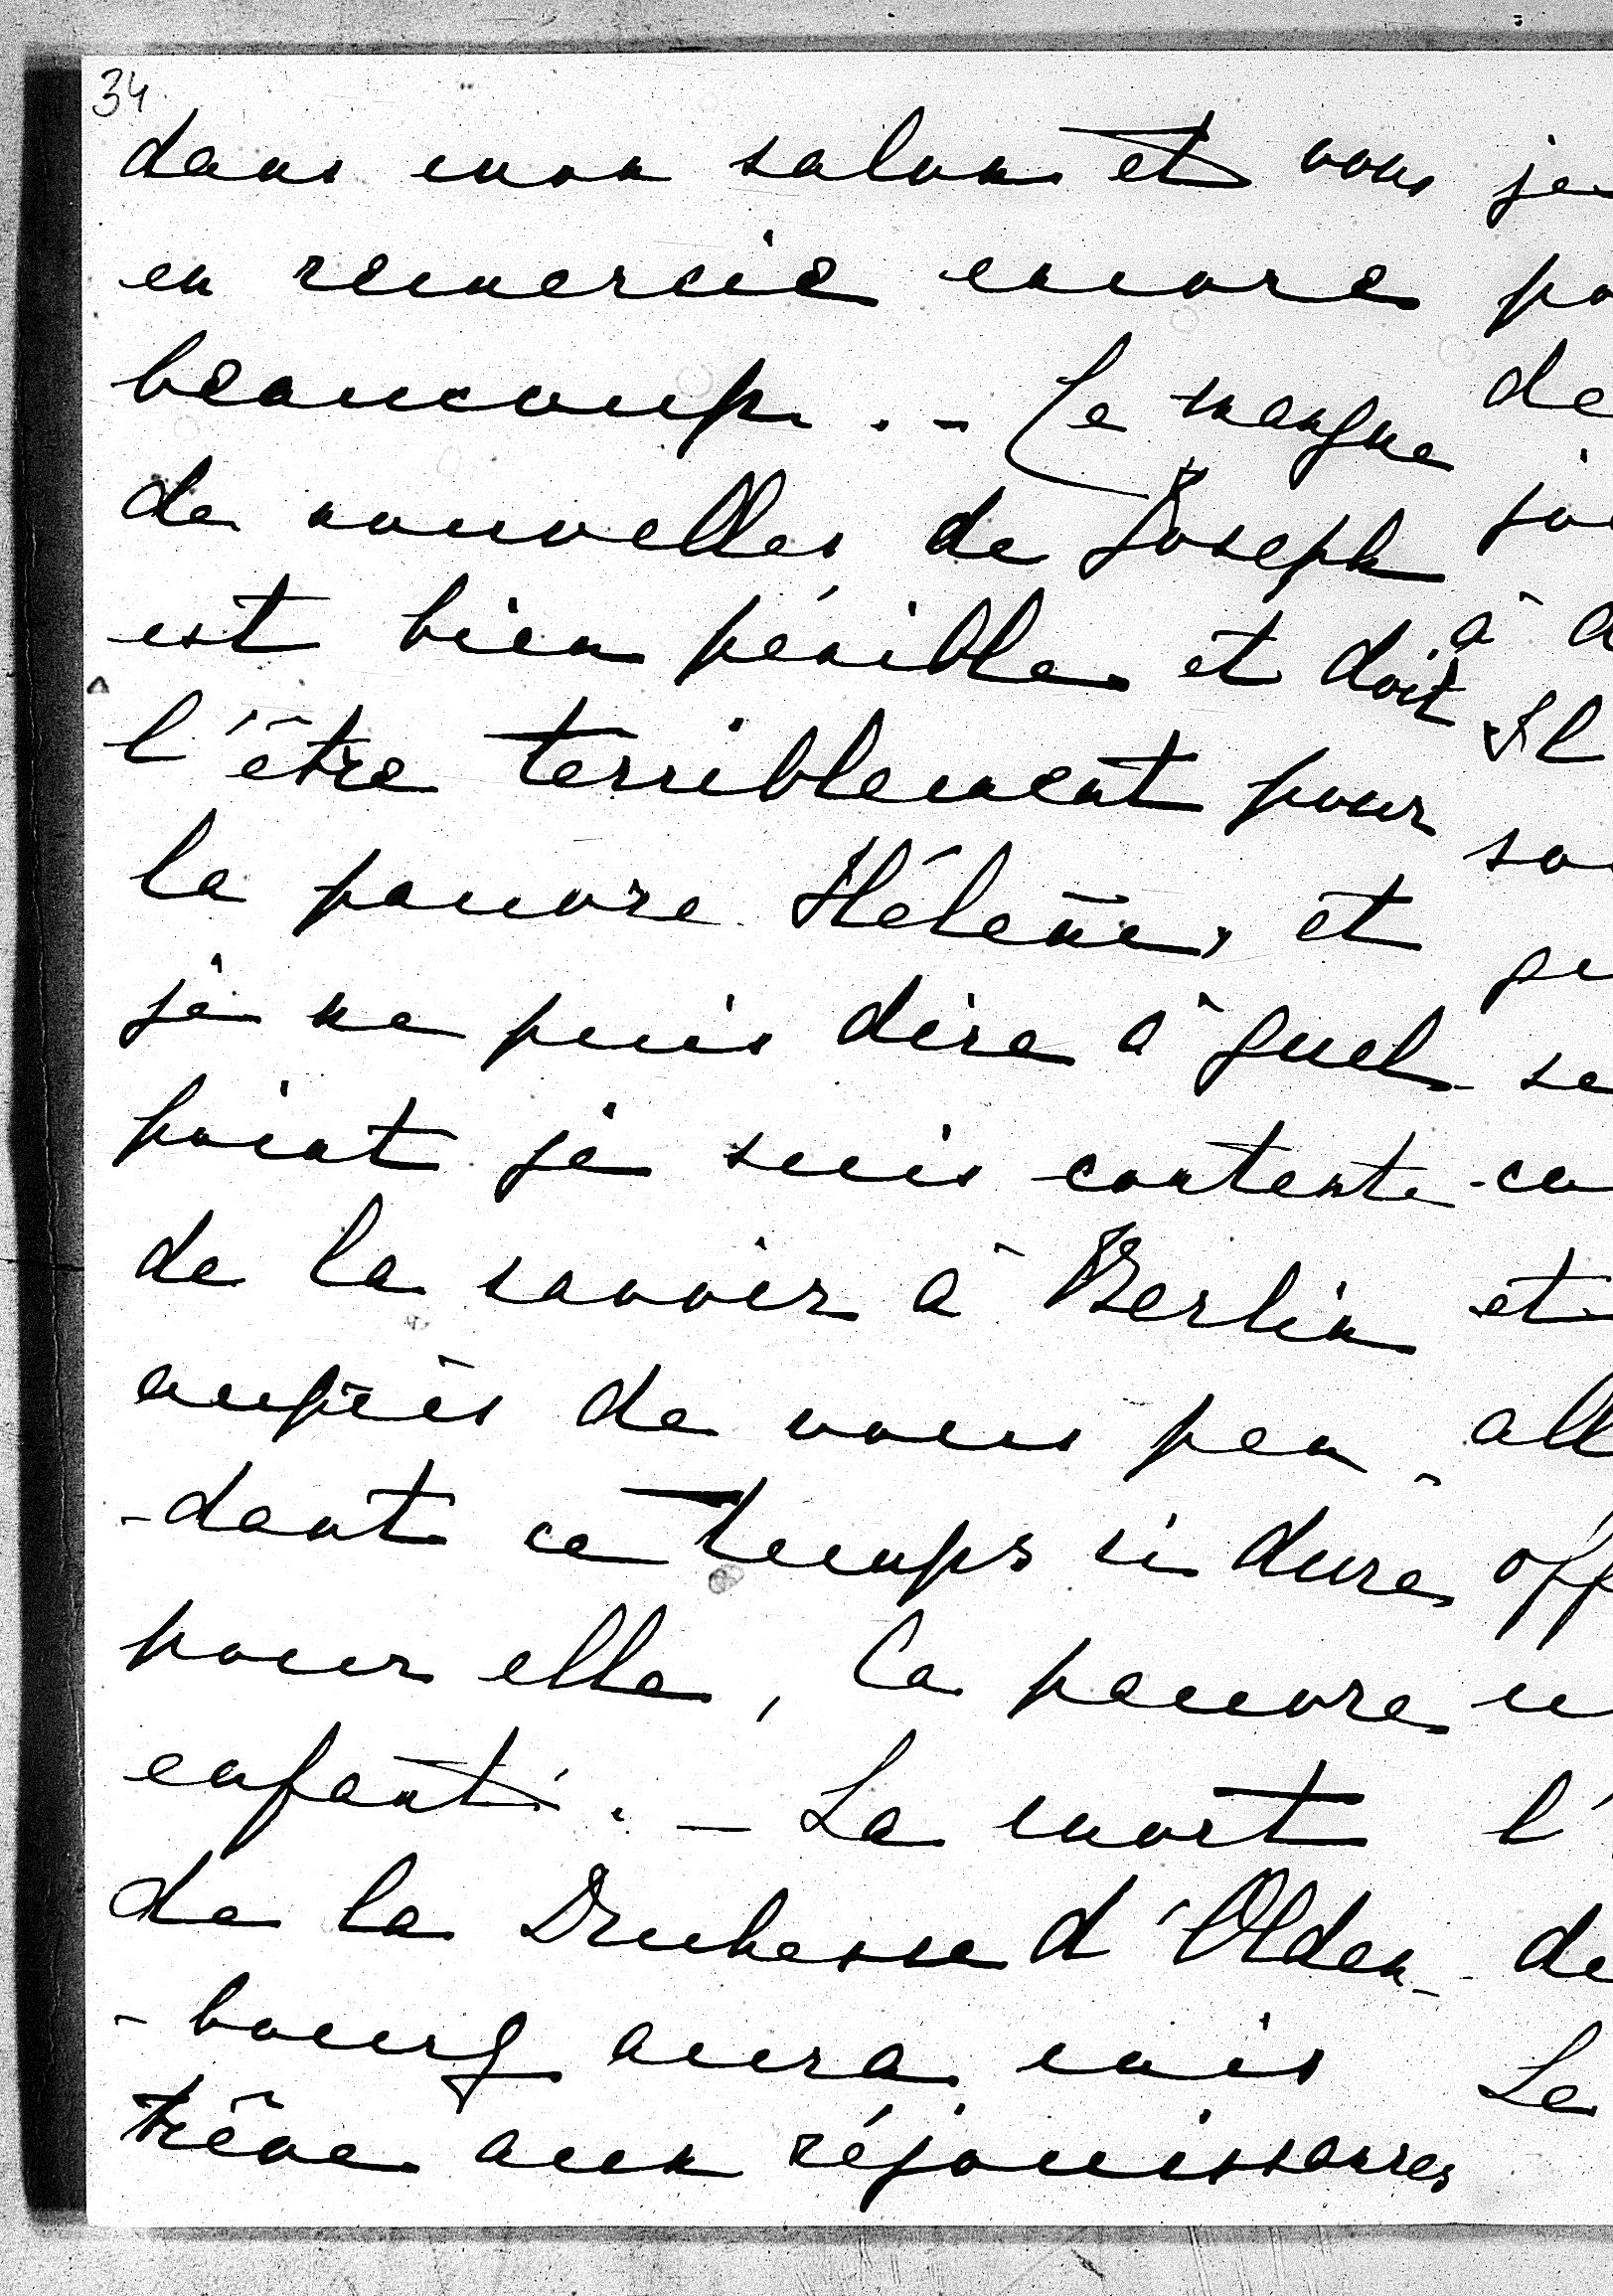 34
dans mon salon et vous
en remercie encore
beaucoup. - Le manque
de nouvelles de Joseph
est bien pénible et doit
l'être terriblement pour
la pauvre Hélène, et
je ne puis dire à quel
point je suis contente
de la savoir à Berlin
auprès de vous pen-
-dant ce temps si dure
pour elle, la pauvre
enfant. - La mort
de la Duchesse d'Olden-
-bourg aura mis
trêve aux réjouissances
je
de
à
Il
et
Le